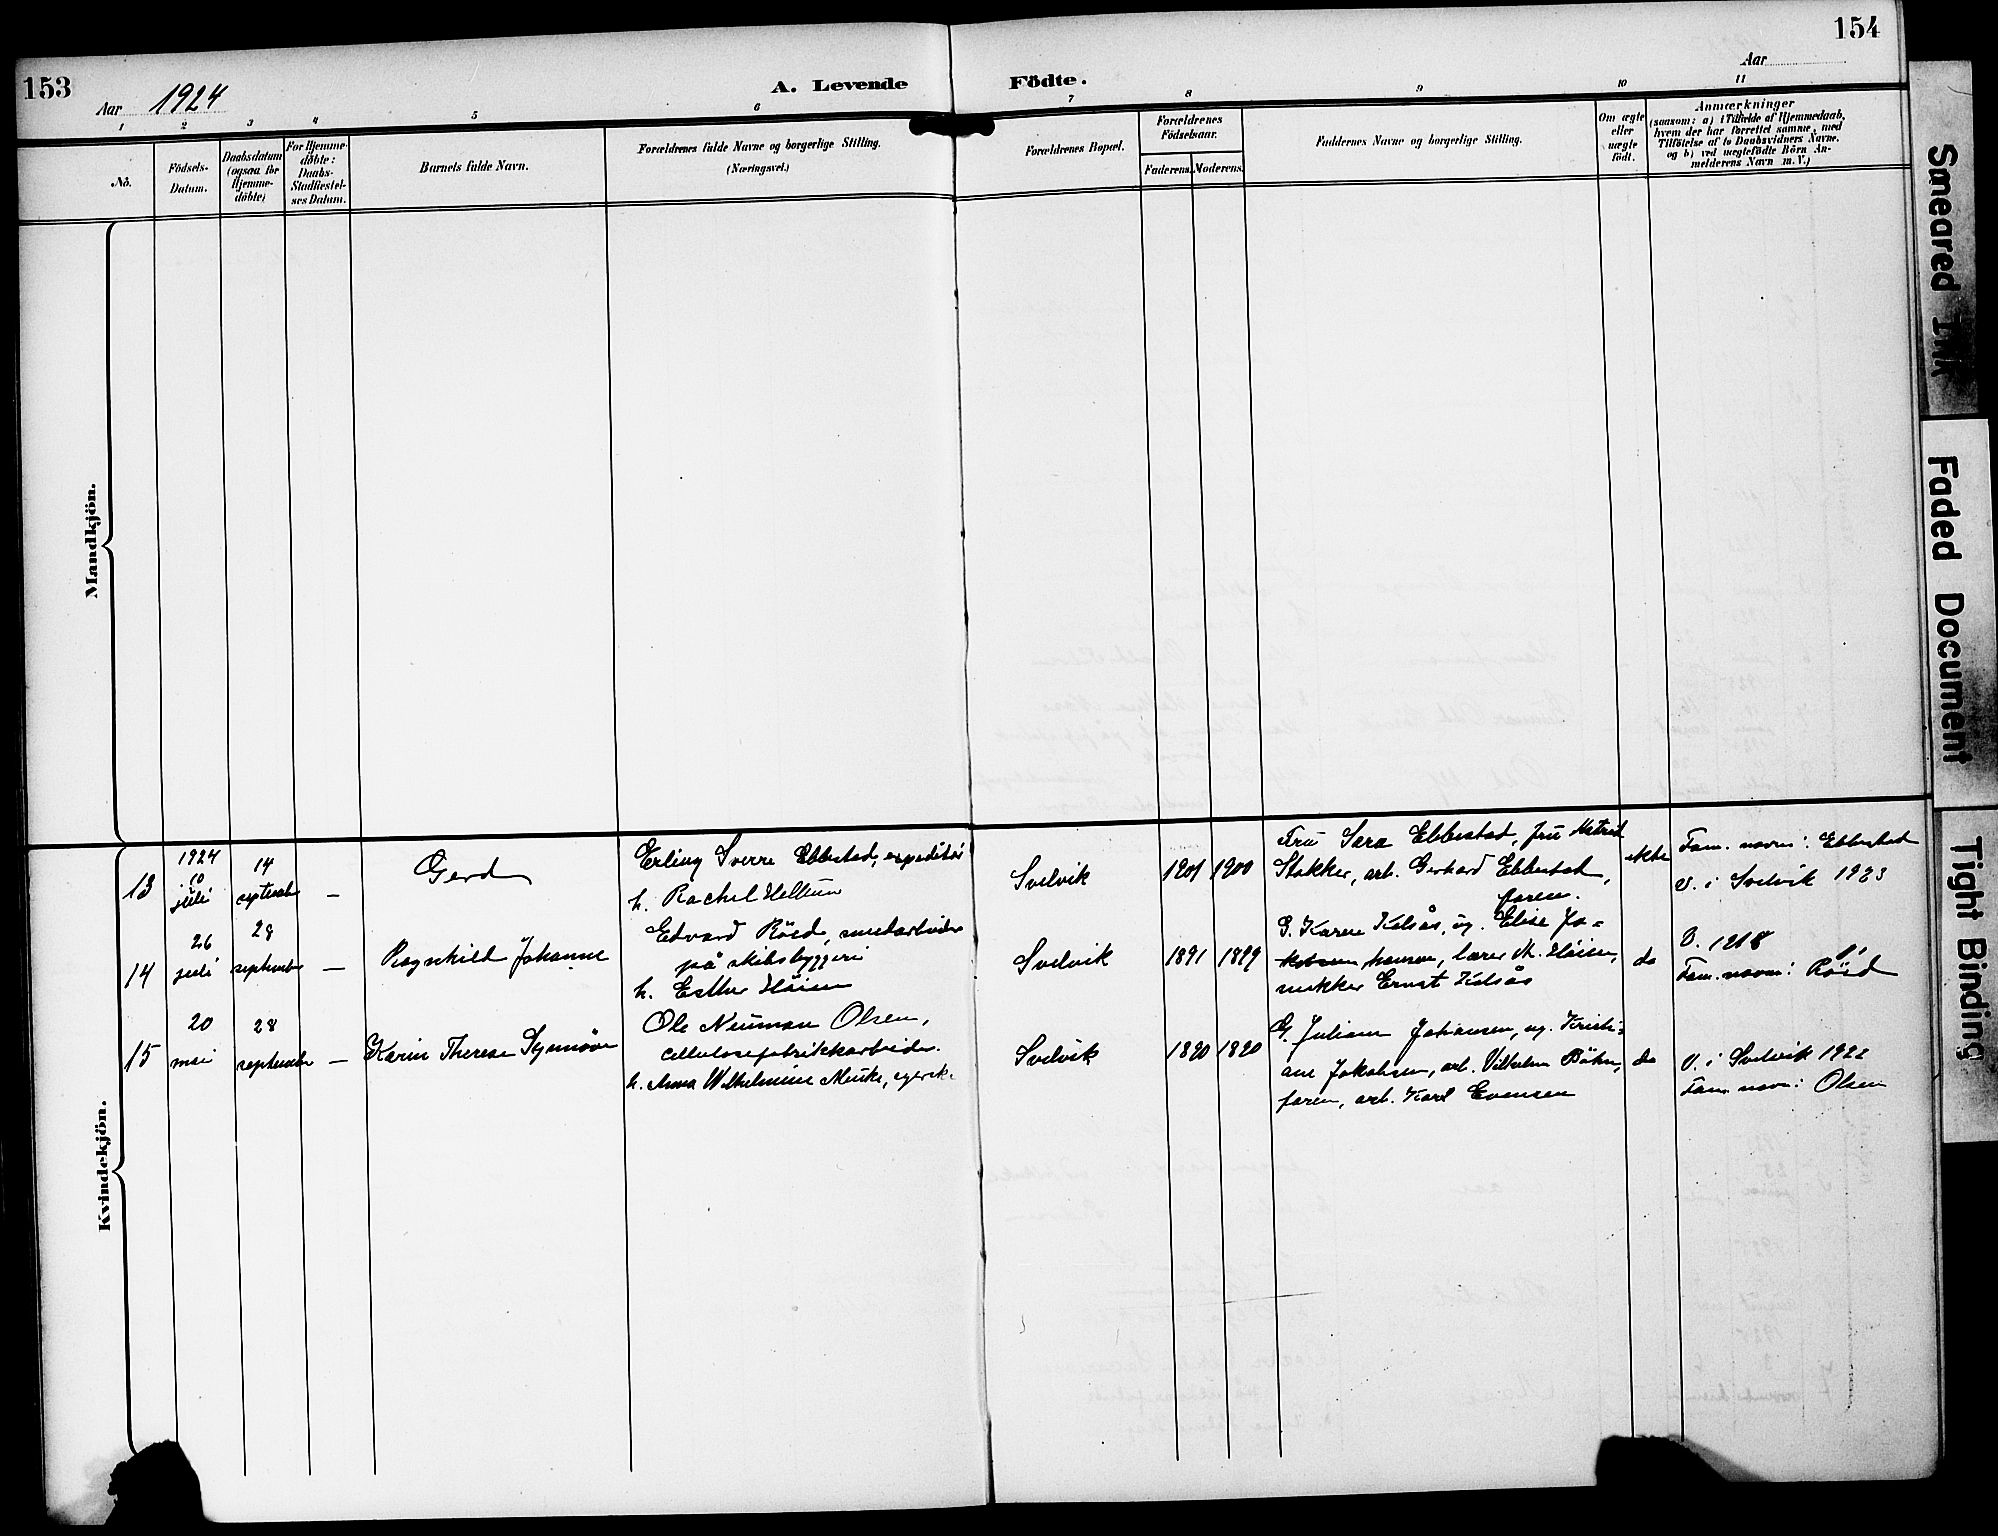 153
154
Aar 1924
A. Levende Födte.
Aar
1 2 3 4 5 6 7 8 9 10 11
No.
Födsels-
Datum.
Daabsdatum
(ogsaa for
Hjemme-
döbte)
For Hjemme-
döbte:
Daabs-
Stadfæstel-
ses Datum.
Barnets fulde Navn.
Forældrenes fulde Navne og borgerlige Stilling.
(Næringsvei.)
Forældrenes Bopæl.
Forældrenes
Födselsaar.
Faderens. Moderens.
Faddernes Navne og borgerlige Stilling.
Om ægte
eller
uægte
födt.
Anmærkninger
(saasom: a) i Tilfælde af Hjemmedaab,
hvem der har forrettet samme, med
Tilföielse af to Daabsvidners Navne.
og b) ved uægtefödte Börn An-
melderens Navn m. V.)
Mandkjön.
Kvindekjön.
13
1924
10
juli
14
september
—
Gerd
Erling Sverre Ebbestad, expeditör
h. Rachel Hellum
Svelvik
1901 1900
Fru Sara Ebbestad, fru Astrid
Stokker, arb. Gerhard Ebbestad,
faren.
ekte
Fam. navn: Ebbestad
V. i Svelvik 1923
14
26
juli
28
september
—
Ragnhild Johanne
Edvard Röed,
på skibsbyggeri
h. Esther Höisen
Svelvik
1891 1899
G. Karen Kolsås, ug. Elise Jo-
hansen, lærer M. Höisen,
snekker Ernst Kolsås
do
V. 1918
Fam. navn: Röed
15
20
mai
28
september
—
Karin Therese Synnöve
Ole Neuman Olsen,
cellulosefabrikkarbeider.
h. Anna Wilhelmine Menke,
Svelvik
1890 1890
G. Juliane Johansen, ug. Kristi-
ane Jakobsen, arb. Vilhelm Böhn,
faren, arb. Karl Evensen
do
V. i Svelvik 1922
Fam. navn: Olsen
Smeared Ink
Faded Document
Tight Binding